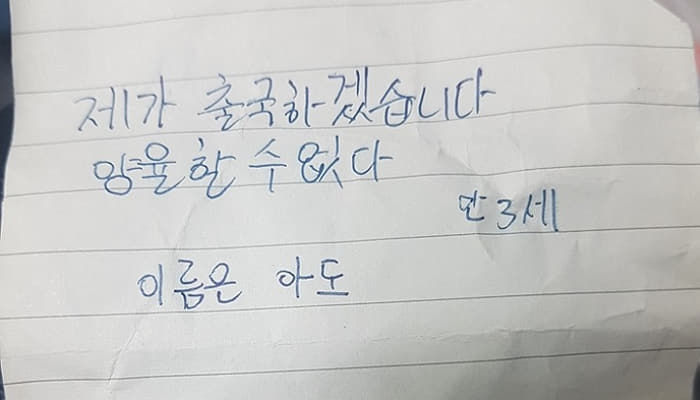 제가 출국하겠습니다
양율할 수 없다
만 3세
이름은 아도